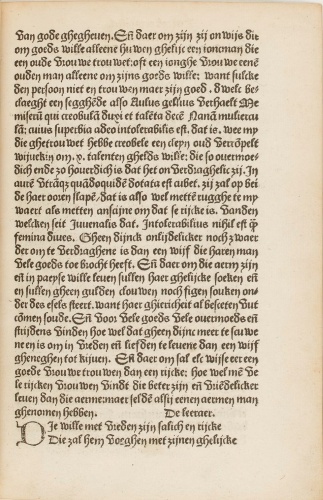 van gode ghegheuen. Eñ daer om zijn zij onwijs die
om goeds wille alleene huwen ghelijc een ioncman die
een oude vrou we trou wet: oft een ionghe vrou we eenē
ouden man alleene om zijns goeds wille: want sulcke
den persoon niet en trou wen maer zijn goed. dwelc be
claeght een segghēde also Aulus gellius verhaelt Me
miserū qui crobulā duxi et talēta decē Nanā muliercu
lā: cuius superbia adeo intolerabilis est. dat is. wee my
die ghetrou wet hebbe crobele een cleyn oud verrōpelt
wijuekin om .x. talenten ghelds wille: die so ouermoe-
dich ende zo houerdich is dat het onverdraghelic zij. In
aurē vtrāq; quādoquidē dotata est cubet. zij zal op bei
de haer ooren slapē/ dat is also wel metten rugghe te my
waert als metten ansichte om dat se rijcke is. vanden
welcken seit Juuenalis dat. Intolerabilius nihil est q̄
femina diues. Gheen dijnck onlijdelicker noch zwaer
der om te verdraghene is dan een wijf die haren man
vele goeds tot brocht heeft. Eñ daer om die aerm zijn
eñ in payse wille leuen sullen haer ghelijcke soeken eñ
en sullen gheen gulden clouwen noch figen souken on-
der des esels steert. want haer ghiericheit al besceten vut
cōmen soude. Eñ voor vele goeds vele ouermoeds eñ
strijdens vinden hoe wel dat gheen dijnc meer te scuwe
ne en is om in vreden eñ liefden te leuene dan een wijf
gheneghen tot kijuen. Eñ daer om sal elc wijse eer een
goede vrou we trou wen dan een rijcke: hoe wel mē ve
le rijcken vrou wen vindt die beter zijn eñ vriēdelicker
leuen dan die aerme: maer seldē alsij eenen aermen man
ghenomen hebben. De leeraer.
Die wille met vreden zijn salich en rijcke
Die zal hem vorghen met zijnen ghelijcke